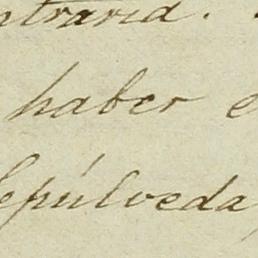 ntraria.
haber e
Sepúlveda